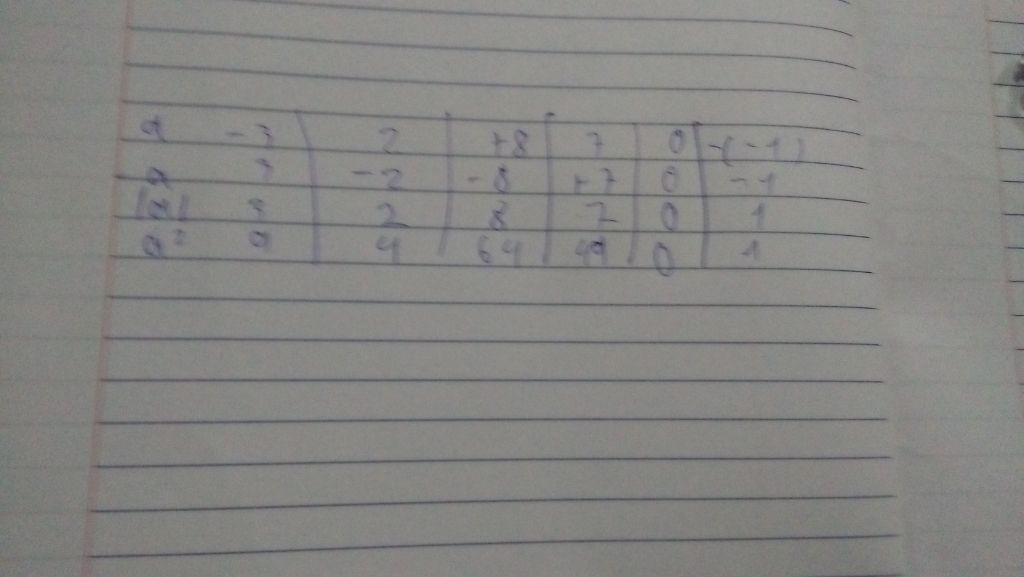 a -3 2 +8 7 0 -(-1)
a 3 -2 -8 +7 0 -1
|a| 3 2 8 7 0 1
a² 9 4 64 49 0 1